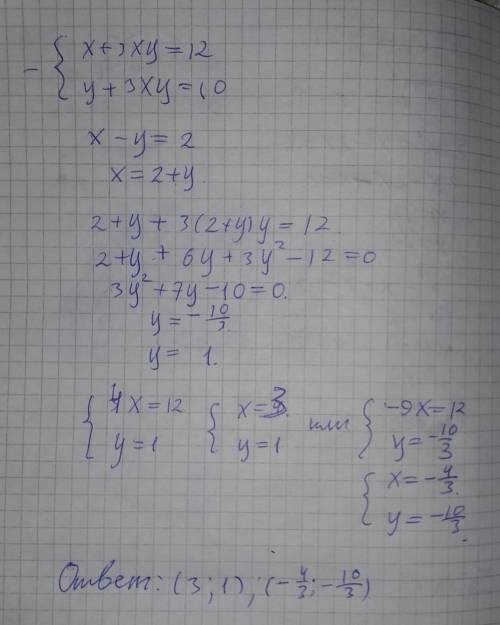 - { x+3xy=12
y+3xy=10
x-y=2
x=2+y
2+y+3(2+y)y=12
2+y+6y+3y²-12=0
3y²+7y-10=0.
y=-10/3
y=1.
{ 4x=12 { x=3. или { -9x=12
y=1 y=1 y=-10/3
{ x=-4/3.
y=-10/3.
Ответ: (3;1); (-4/3;-10/3)